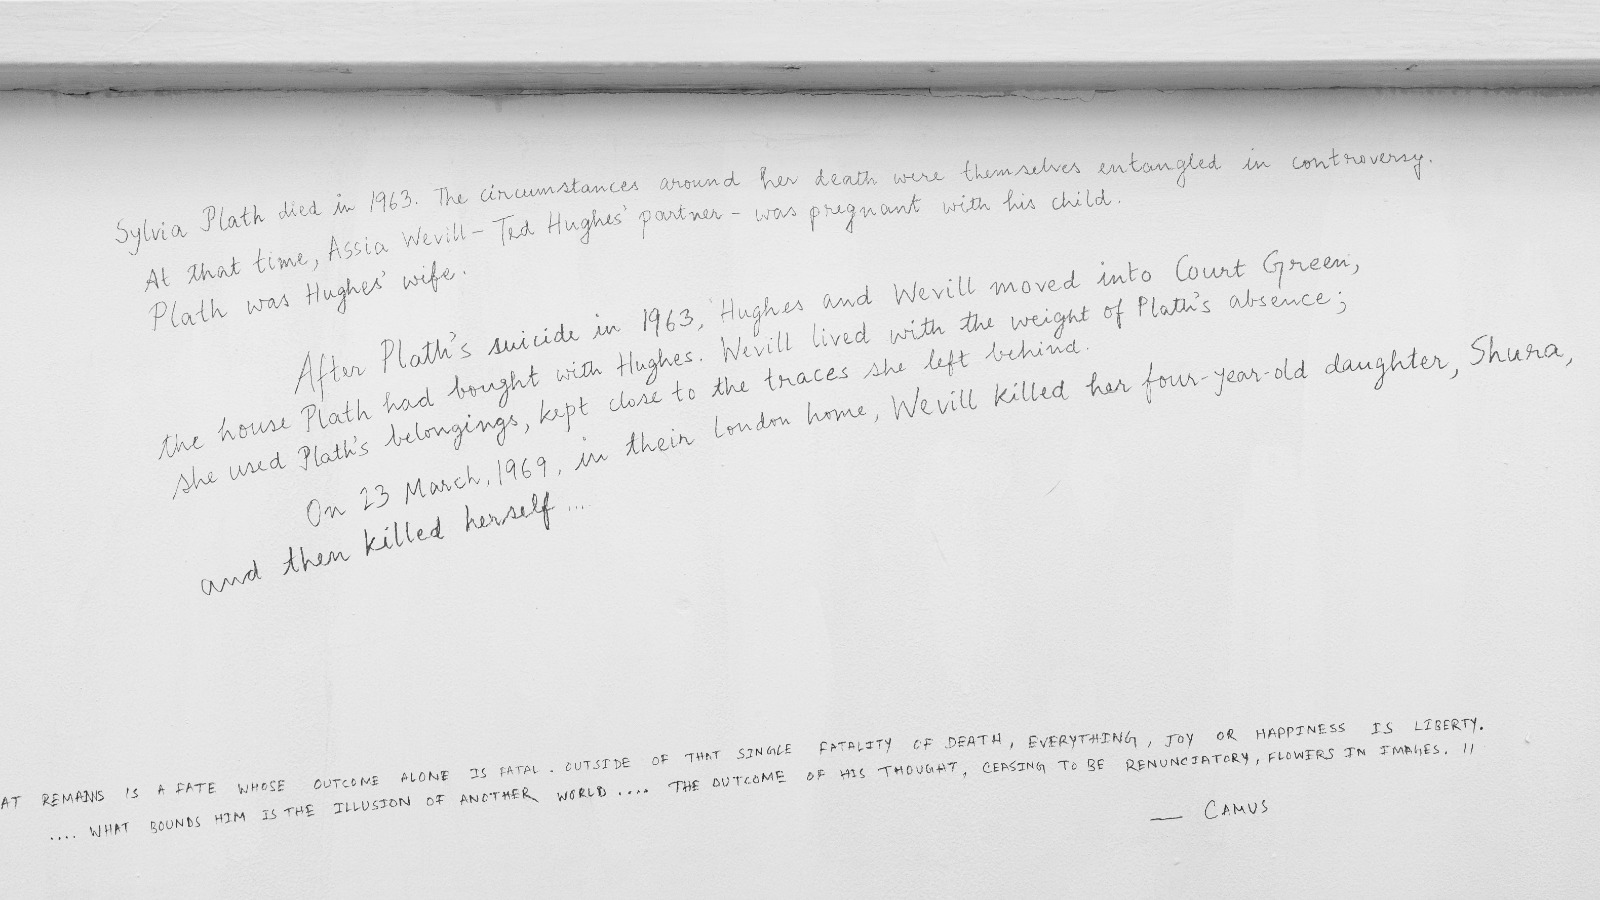 Sylvia Plath died in 1963. The circumstances around her death were themselves entangled in controversy.
At that time, Assia Wevill – Ted Hughes' partner – was pregnant with his child.
Plath was Hughes' wife.
After Plath's suicide in 1963, Hughes and Wevill moved into Court Green,
the house Plath had bought with Hughes. Wevill lived with the weight of Plath's absence;
she used Plath's belongings, kept close to the traces she left behind.
On 23 March, 1969, in their London home, Wevill killed her four-year-old daughter, Shura,
and then killed herself ....
AT REMAINS IS A FATE WHOSE OUTCOME ALONE IS FATAL. OUTSIDE OF THAT SINGLE FATALITY OF DEATH, EVERYTHING, JOY OR HAPPINESS IS LIBERTY.
.... WHAT BOUNDS HIM IS THE ILLUSION OF ANOTHER WORLD .... THE OUTCOME OF HIS THOUGHT, CEASING TO BE RENUNCIATORY, FLOWERS IN IMAGES. "
— CAMUS